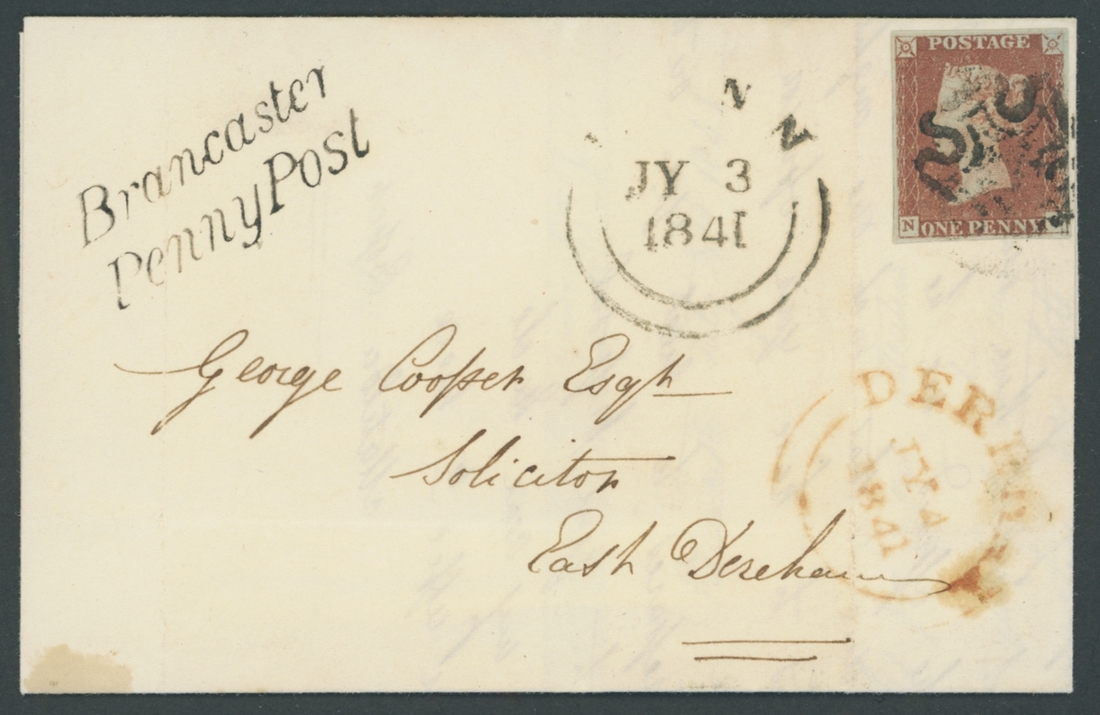 Brancaster
Penny Post
N N
JY 3
1841
POSTAGE
N ONE PENNY
George Cooper Esqr
Solicitor
East Dereham
DERE
JY 4
1841